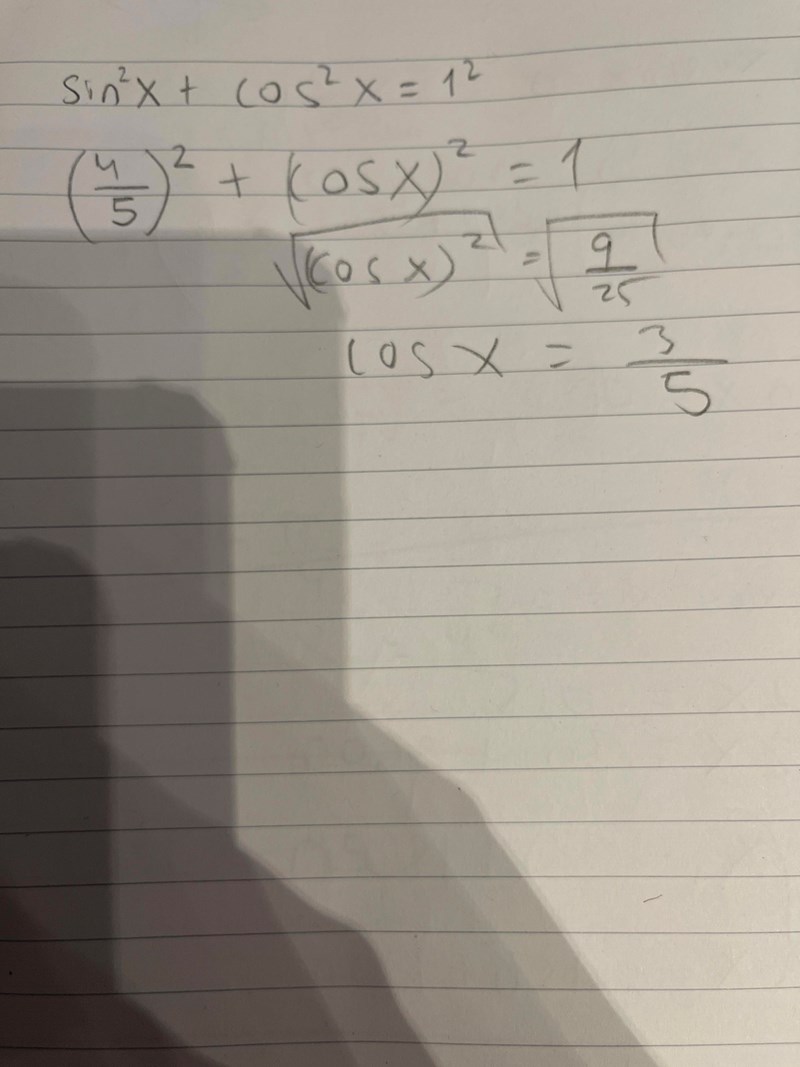 sin²x + cos²x = 1²
(4/5)² + (cosx)² = 1
√(cosx)² = √9/25
cosx = 3/5